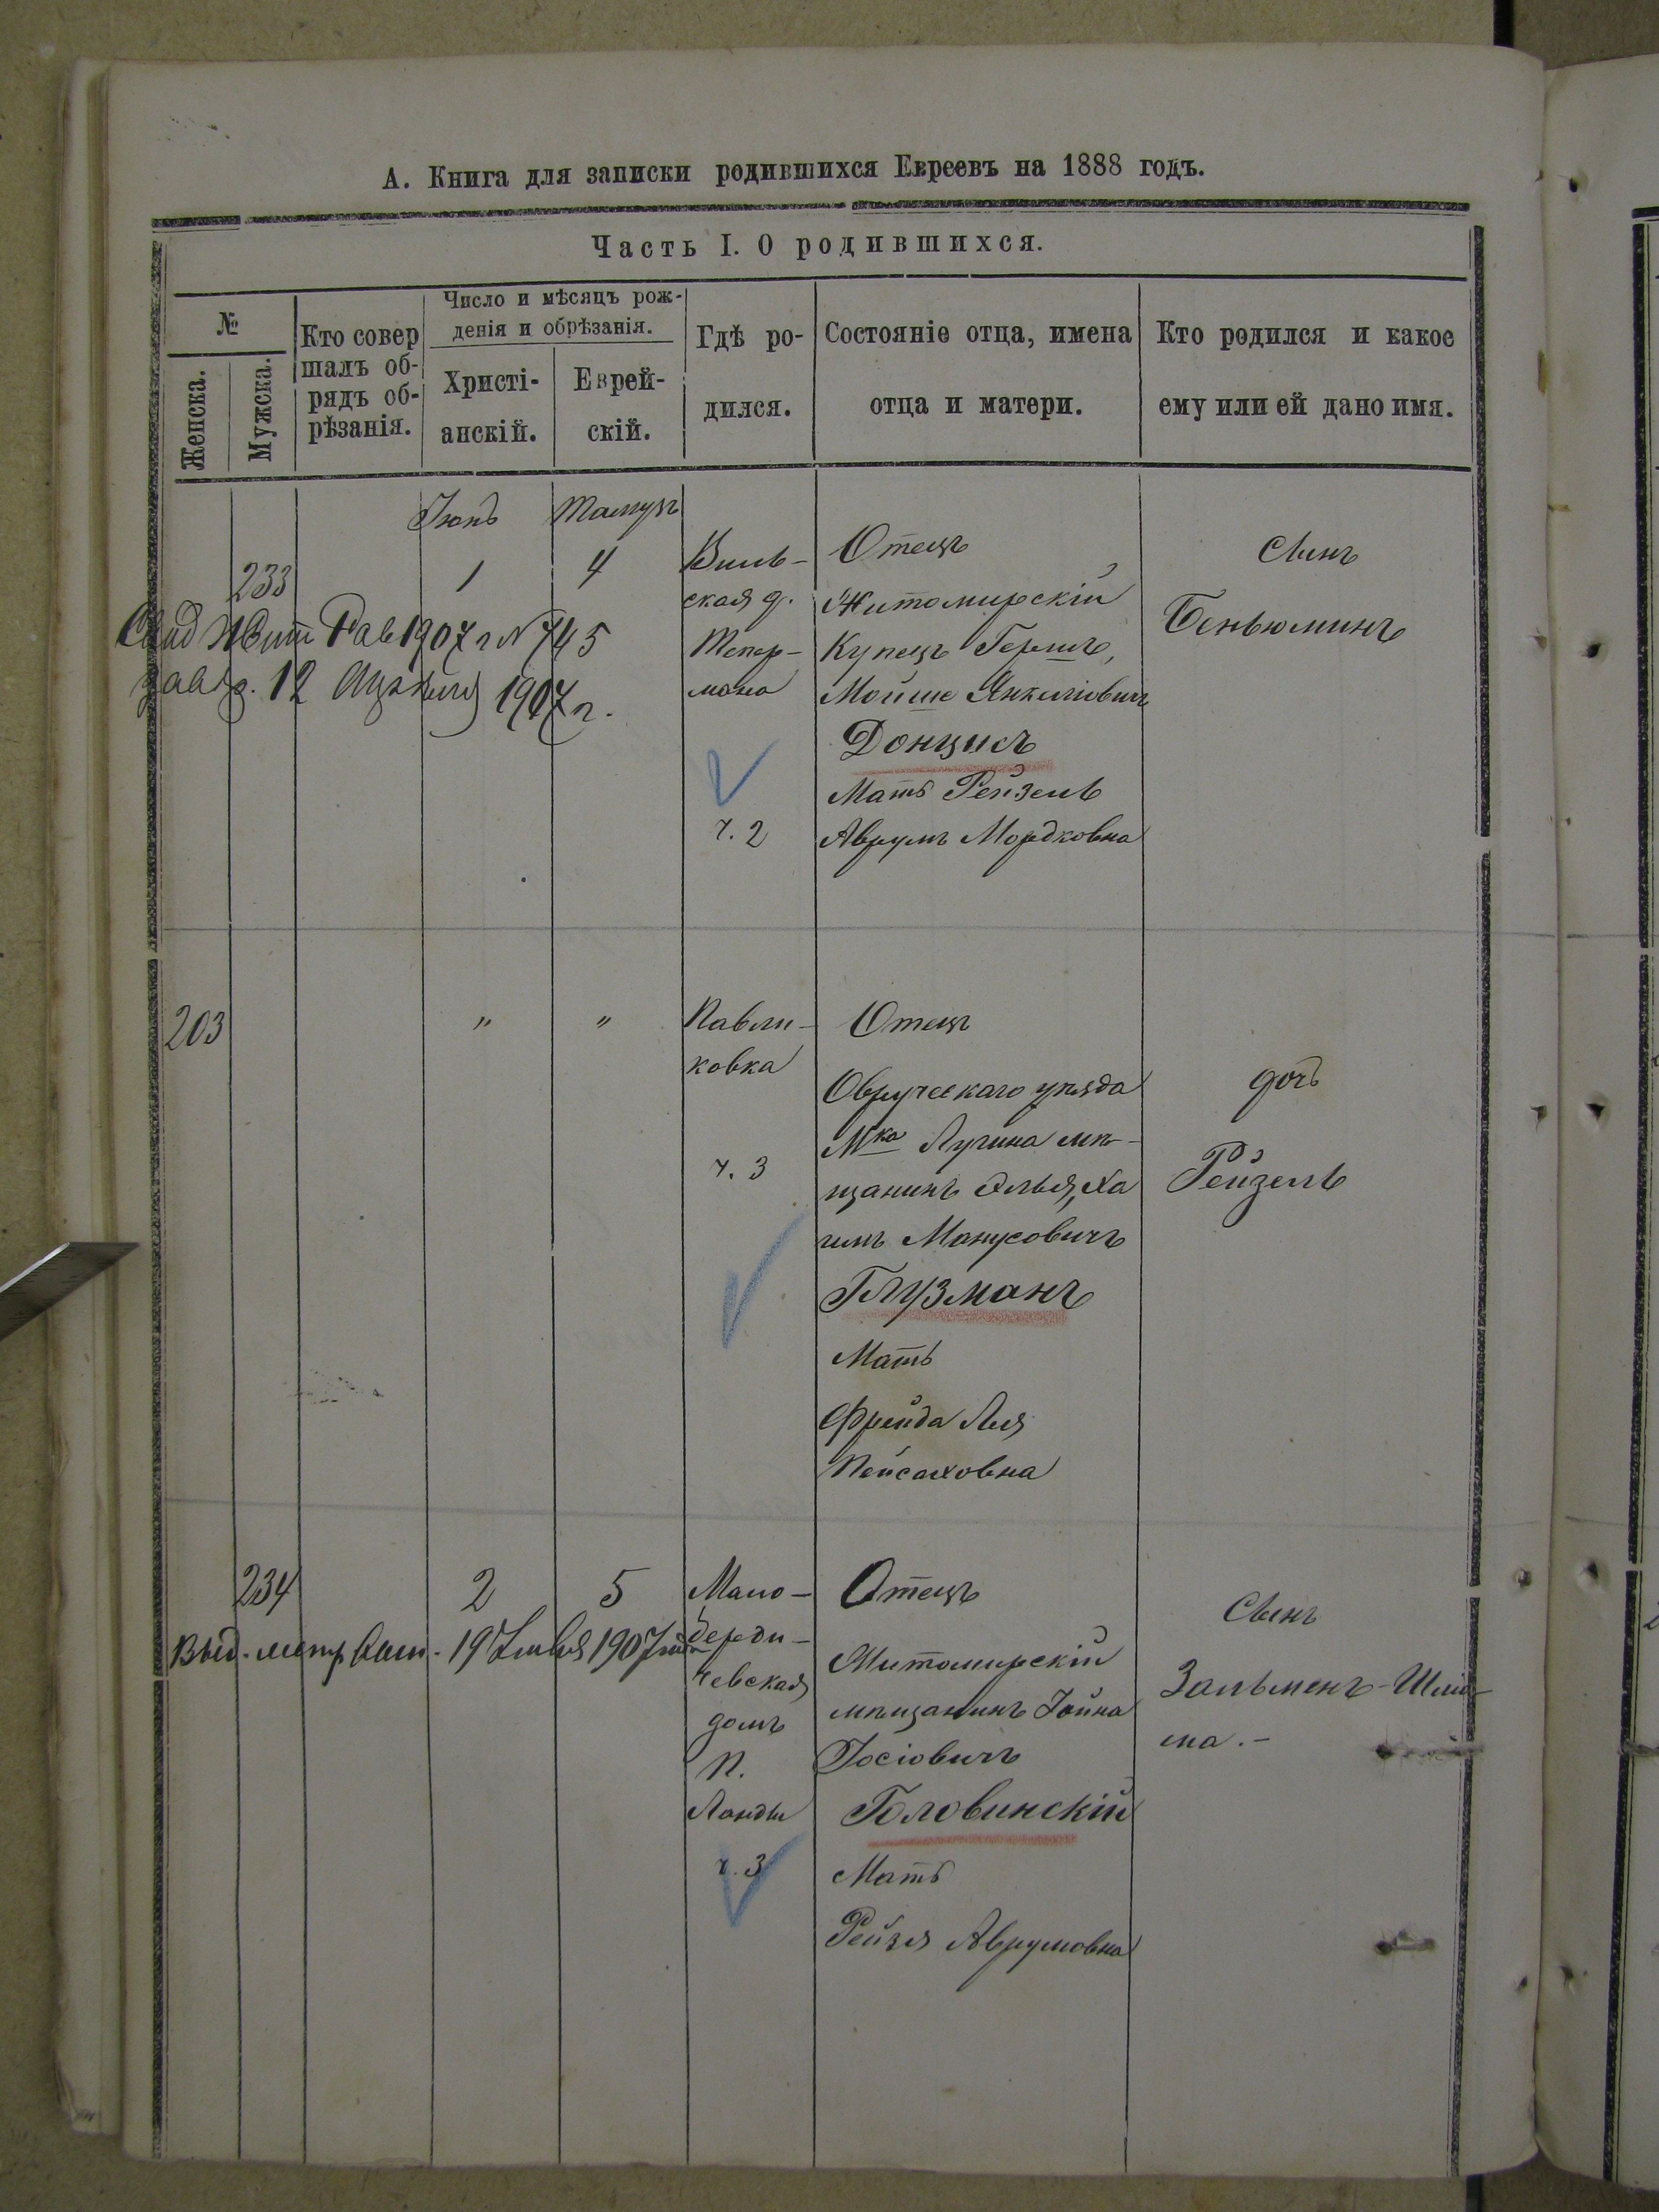 А. Книга для записки родившихся Евреевъ на 1888 годъ.
Часть I. О родившихся.
№
Женска.
Мужска.
Кто совер
шалъ об-
рядъ об-
рѣзанія.
Число и мѣсяцъ рож-
денія и обрѣзанія.
Христі-
анскій.
Еврей-
скій.
Гдѣ ро-
дился.
Состояніе отца, имена
отца и матери.
Кто родился и какое
ему или ей дано имя.
Іюнь
Тамузъ
233
1
4
Виль-
ская д.
Тепер-
мана
ч. 2
Отецъ
Житомирскій
Купецъ Гершъ,
Мойше Янкилiовичъ
Донцисъ
Мать Рейзель
Аврумъ Мордковна
Сынъ
Беньюминъ
1907 г № 745
12 1907 г.
203
"
"
Павли-
ковка
ч. 3
Отецъ
Овручскаго уѣзда
Мка Лугина мѣ-
щанинъ Элья, Ха
имъ Манусовичъ
Глузманъ
Мать
Фрейда Лея
Пейсаховна
дочь
Рейзель
234
2
5
Мало-
берди-
чевская
домъ
П.
Ланды
ч. 3
Отецъ
Житомирскій
мѣщанинъ Іойна
Іосіовичъ
Головинскій
Мать
Рейзя Аврумовна
Сынъ
Зальменъ-Шліо-
ма.-
Выд. метр. 1907